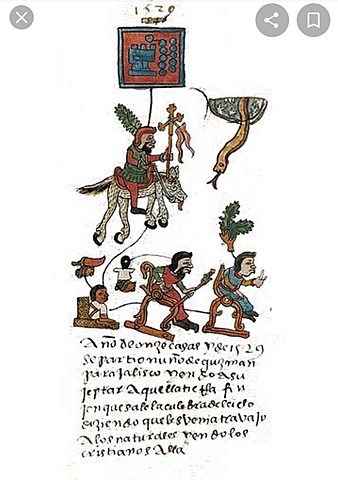 1529
Año de onze casas y de 1529
se partio nuño de guzman
para jalisco yendo a su
jeptar aquella tierra fin
jen que sale la culebra del cielo
diziendo que les venia travajo
a los naturales yendo los
cristianos alla